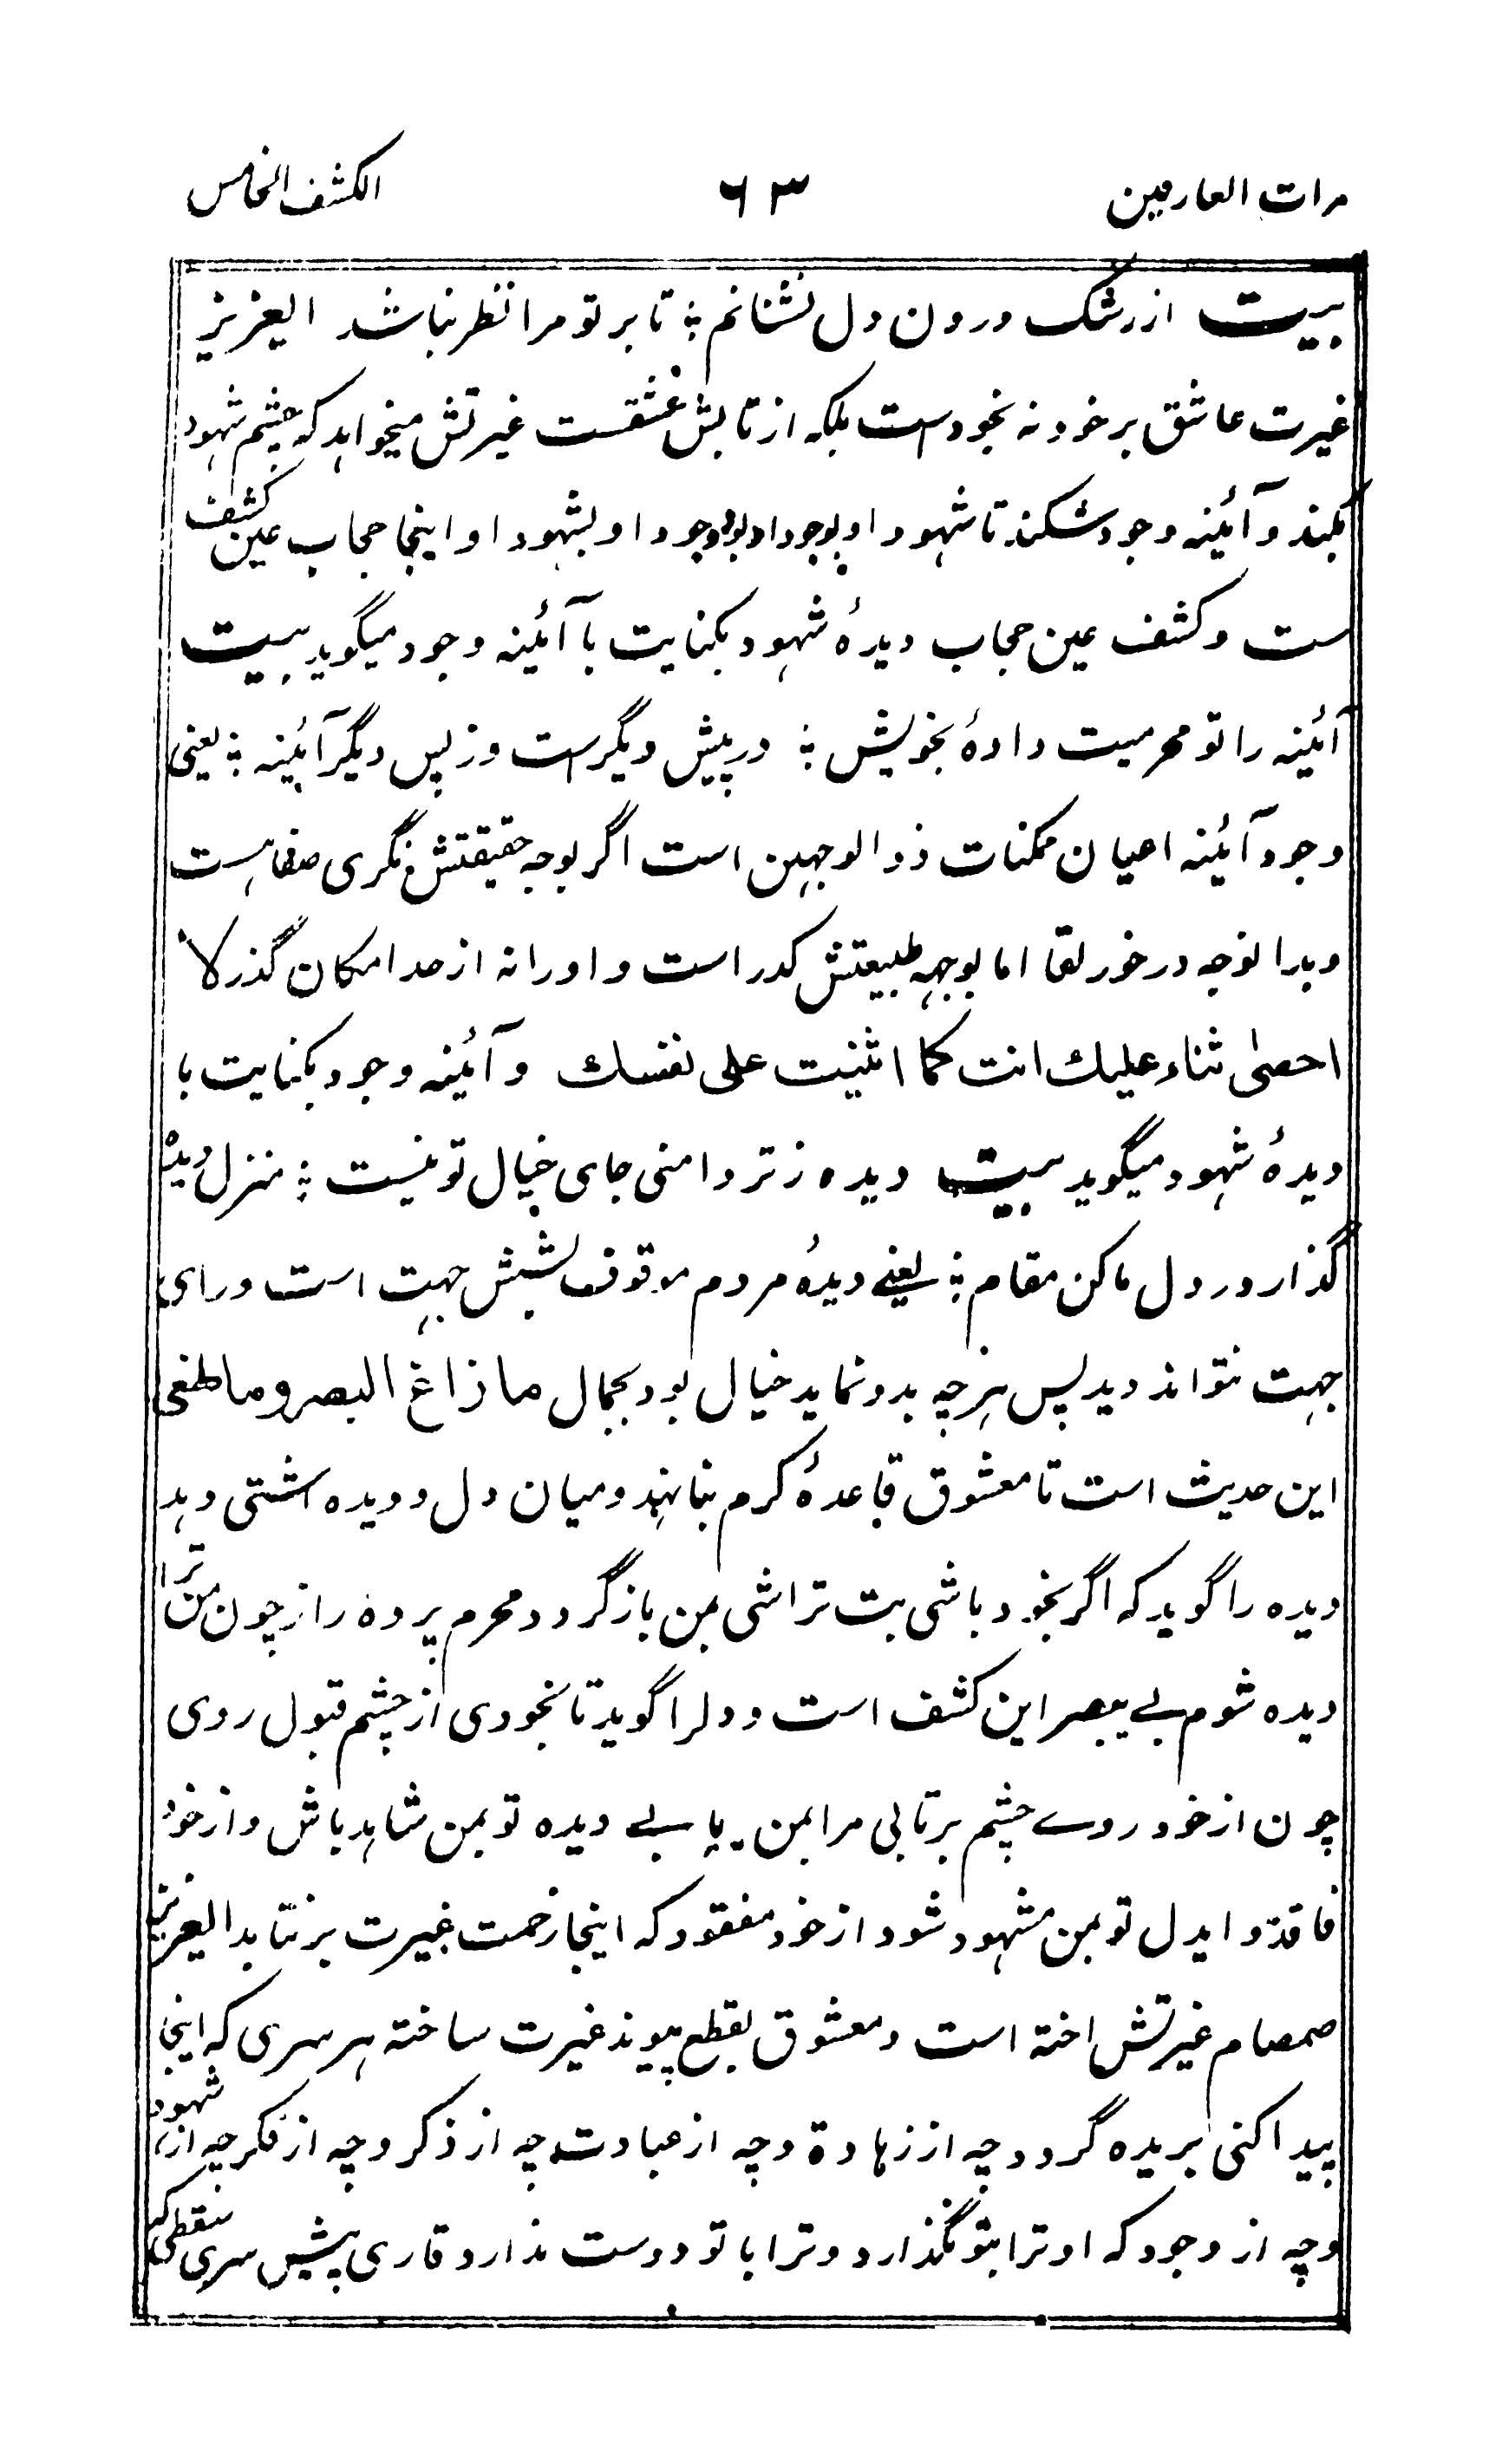 مرات العارفین ۶۳ الکشف الخامس
بیت از رشک درون دل نشانم ؛ تا بر تو مرا نظر نباشد العزیز
غیرت عاشق بر خود نه بخودست بلکه از تابش عشقست غیرتش میخواهد که چشم شهود
بکند و آئینه وجود شکند تا شهود او بوجود او بود وجود او بشهود او اینجا حجاب عین کشف
ست و کشف عین حجاب دیدهٔ شهود بکنایت با آئینه وجود میگوید بیت
آئینه را تو محرمیت دادهٔ بخویش ؛ در پیش دیگرست وز پس دیگر آئینه ؛ یعنی
وجود آئینه اعیان ممکنات ذو الوجهین است اگر بوجه حقیقتش نگری صفاہست
و بدا لوجه در خور لقا اما بوجهه طبیعتش کدر است و او را نه از حد امکان گذر لا
احصیٰ ثناء علیك انت کما اثنیت علی نفسك و آئینه وجود بکنایت با
دیدهٔ شهود میگوید بیت دیده ز تر دامنی جای خیال تو نیست ؛ منزل دیدہ
گذار در دل ما کن مقام ؛ یعنے دیدهٔ مردم موقوف بشش جهت است ورای
جهت نتواند دید پس هرچه بدو نماید خیال بود بجمال ما زاغ البصر و ما طغی
این حدیث است تا معشوق قاعدهٔ کرم بنا نهد و میان دل و دیده اشتی دهد
دیده را گوید که اگر بخود باشی بت تراشی بمن باز گرد و محرم پرده راز چون من ترا
دیده شوم بے یبصر این کشف است و دلرا گوید تا بخودی از چشم قبول روی
چون از خود روے چشم برتابی مرا بمن یابے دیده تو بمن شاهد باش و از خود
فاقد و ایدل تو بمن مشهود شو و از خود مفقود که اینجا زحمت غیرت برنتابد العزیز
صمصام غیرتش اخته است و معشوق بقطع پیوند غیرت ساخته هر سری که اینجا
پیدا کنی بریده گردد چه از زهادة و چه از عبادت چه از ذکر و چه از فکر چه از شهود
و چه از وجود که او ترا بتو نگذارد و ترا با تو دوست ندارد قاری پیش سری سقطی که